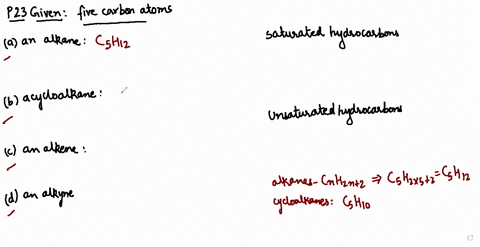 P23 Given: five carbon atoms
(a) an alkane: C5H12
saturated hydrocarbons
(b) acycloalkane:
unsaturated hydrocarbons
(c) an alkene:
(d) an alkyne
alkanes - CnH2n+2 ⇒ C5H2x5+2 = C5H12
cycloalkanes: C5H10